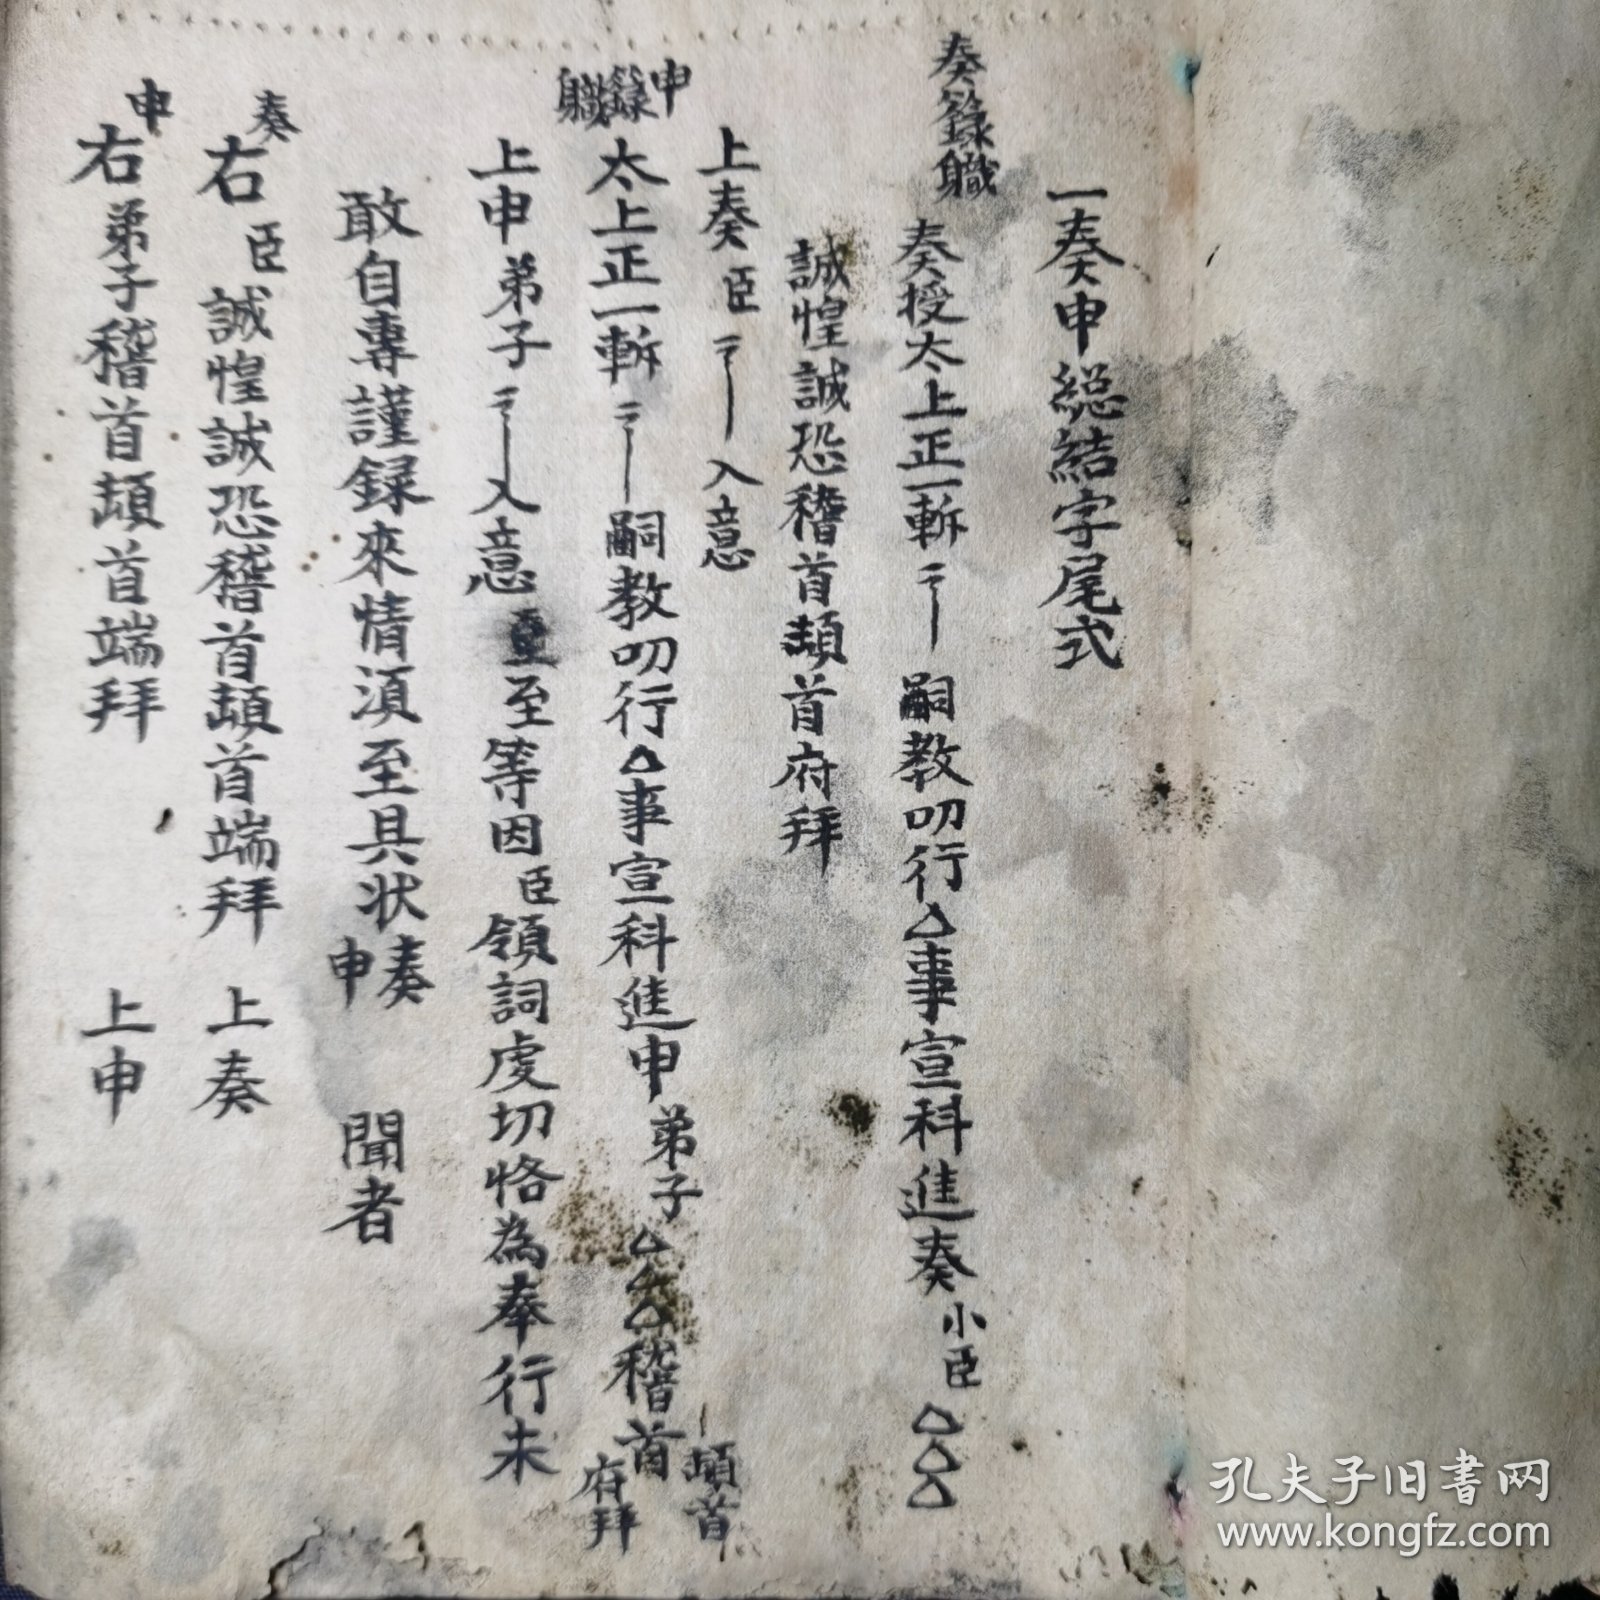 一奏申総結字尾式
奏籙職
奏授太上正一斬 嗣教叨行△事宣科進奏小臣△△△
誠惶誠恐稽首頓首府拜
上奏臣 入意
申籙職
太上正一斬 嗣教叨行△事宣科進申弟子△△△稽首頓首府拜
上申弟子 入意 至等因臣領詞虔切恪為奉行未
敢自專謹録來情須至具状奏申 聞者
奏
右臣誠惶誠恐稽首頓首端拜 上奏
申
右弟子稽首頓首端拜 上申
孔夫子旧書网
www.kongfz.com